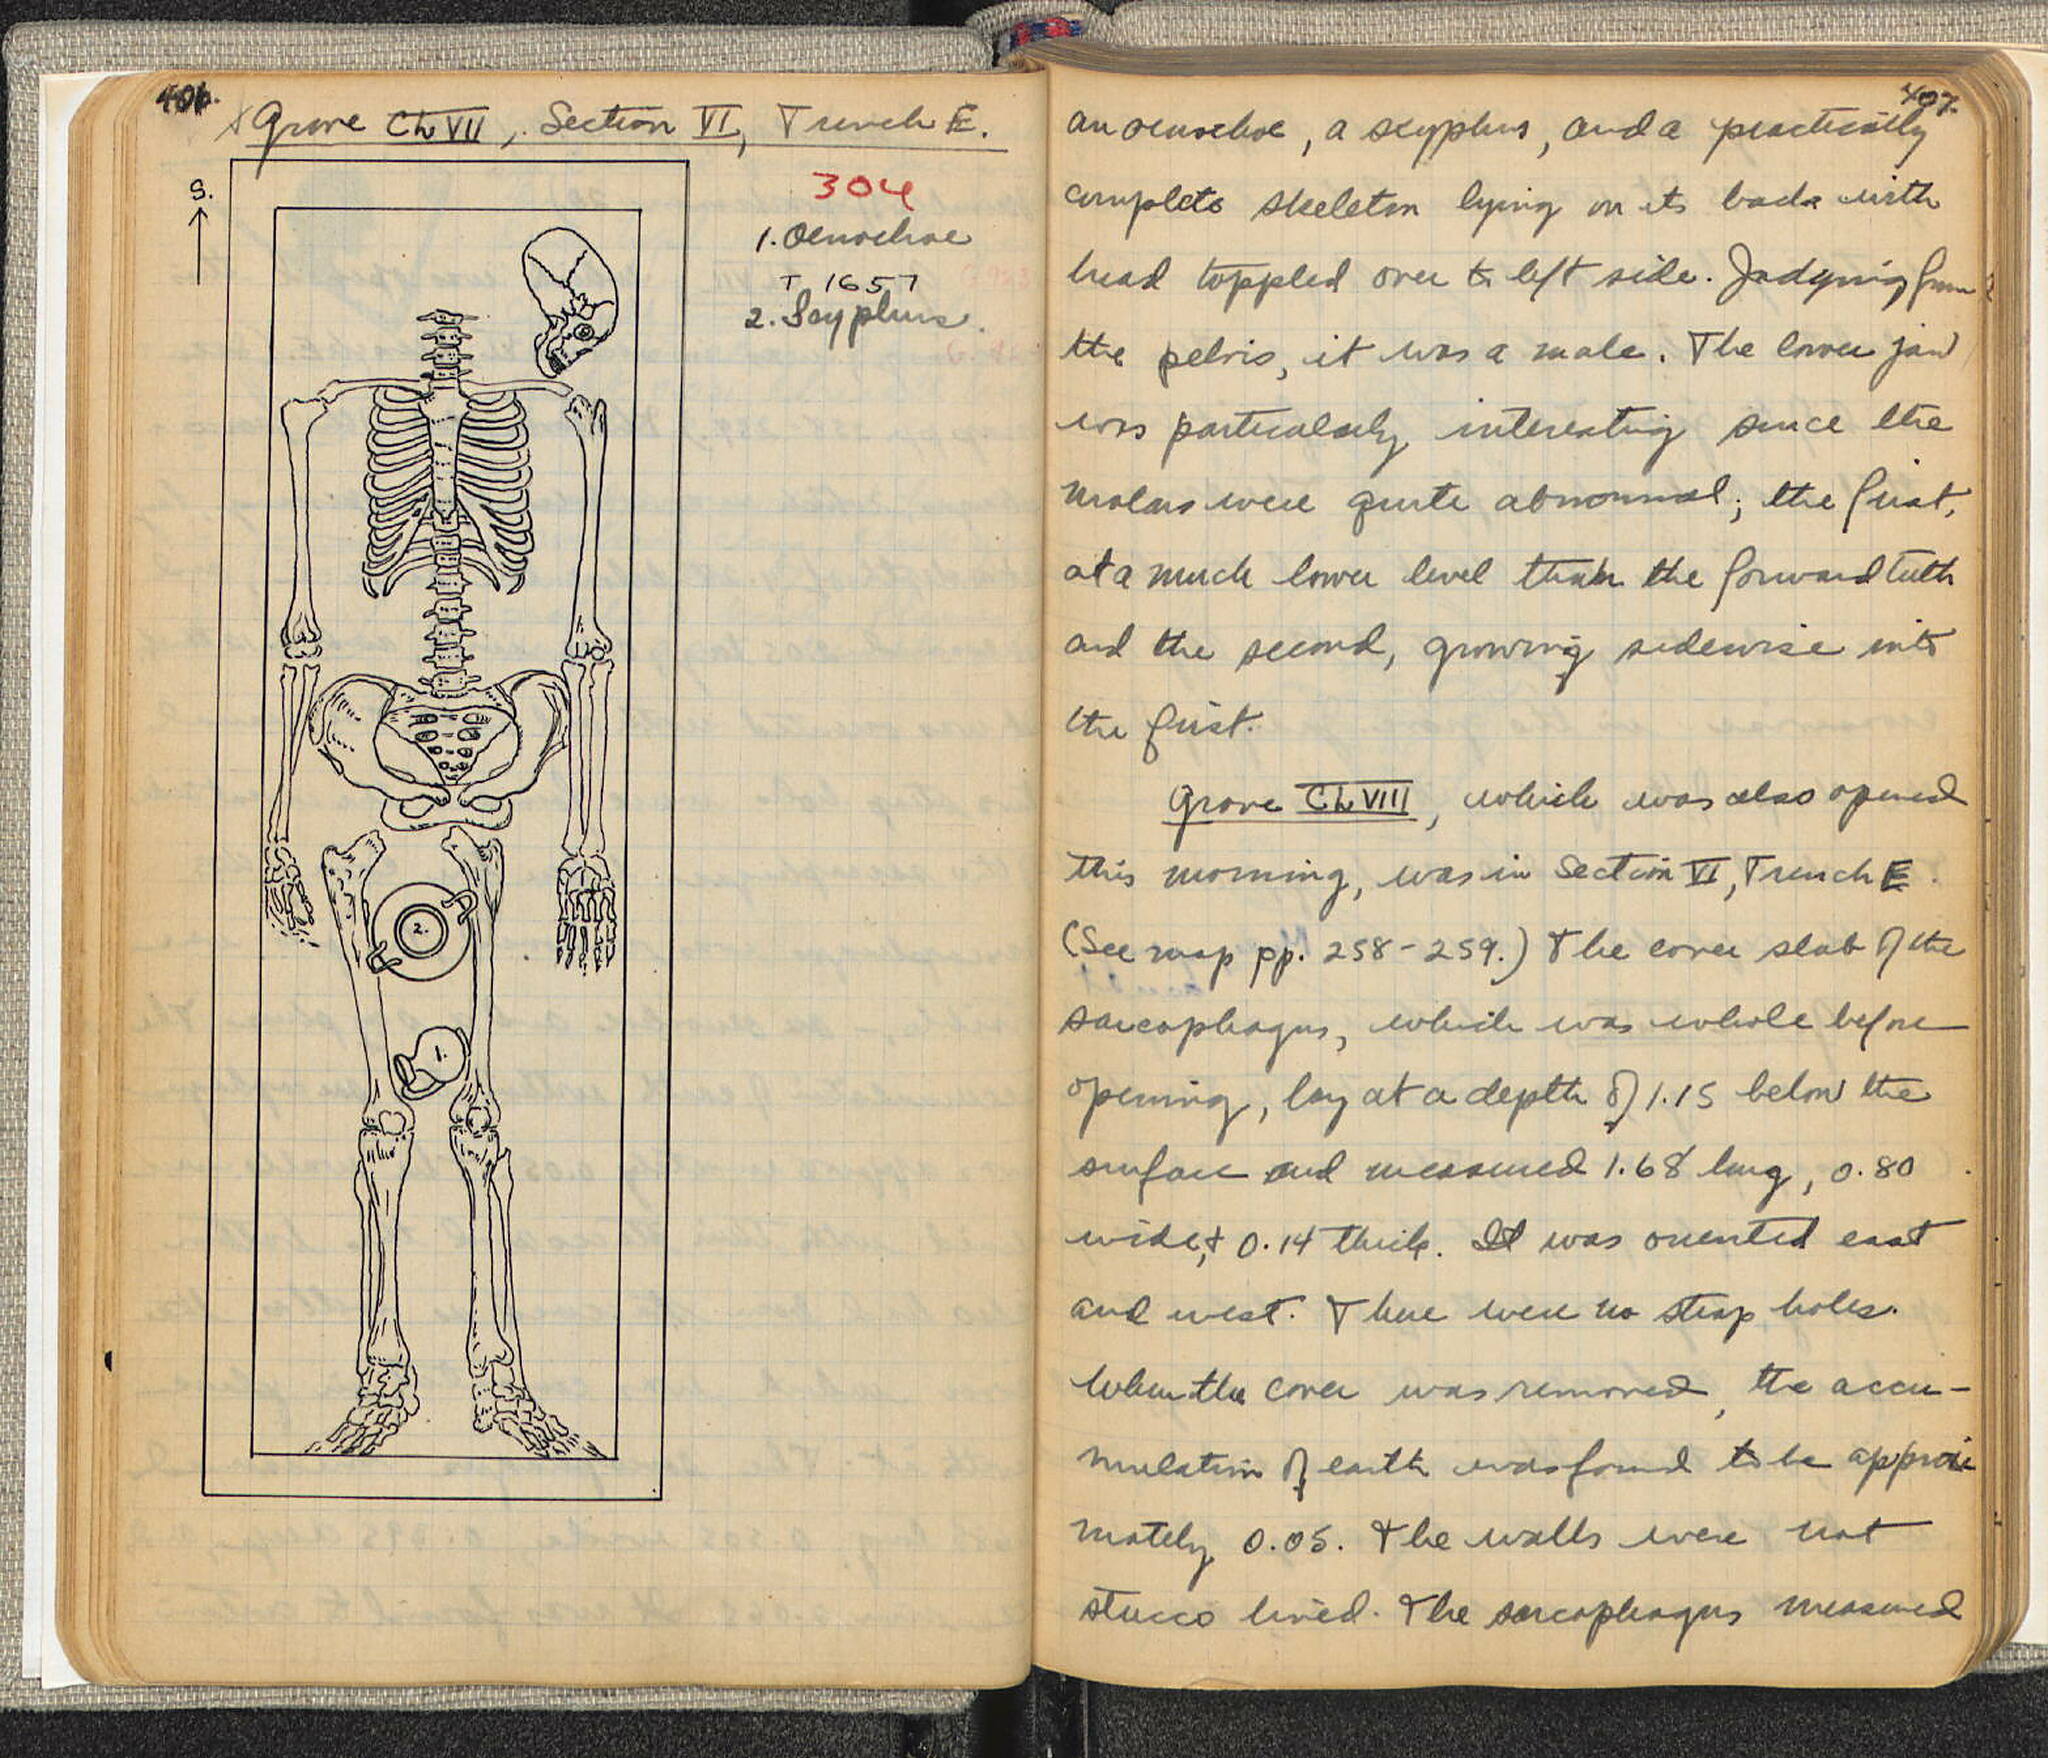 406.
x Grave Ch VII, Section VI, Trench E.
S.
304
1. Oenochoe
T 1657
2. Scyphus.
2.
1.
407.
an oenochoe, a scyphus, and a practically
complete skeleton lying on its back with
head toppled over to left side. Judging from
the pelvis, it was a male. The lower jaw
was particularly interesting since the
molars were quite abnormal; the first,
at a much lower level than the forward teeth
and the second, growing sidewise into
the first.
Grave Ch VIII, which was also opened
this morning, was in Section VI, Trench E.
(See map pp. 258-259.) The cover slab of the
sarcophagus, which was whole before
opening, lay at a depth of 1.15 below the
surface and measured 1.68 long, 0.80
wide, & 0.14 thick. It was oriented east
and west. There were no strap holes.
When the cover was removed, the accu-
mulation of earth was found to be approxi
mately 0.05. The walls were not
stucco lined. The sarcophagus measured